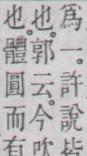 爲一。許說皆
也。郭云。今吹
也。體圓而有